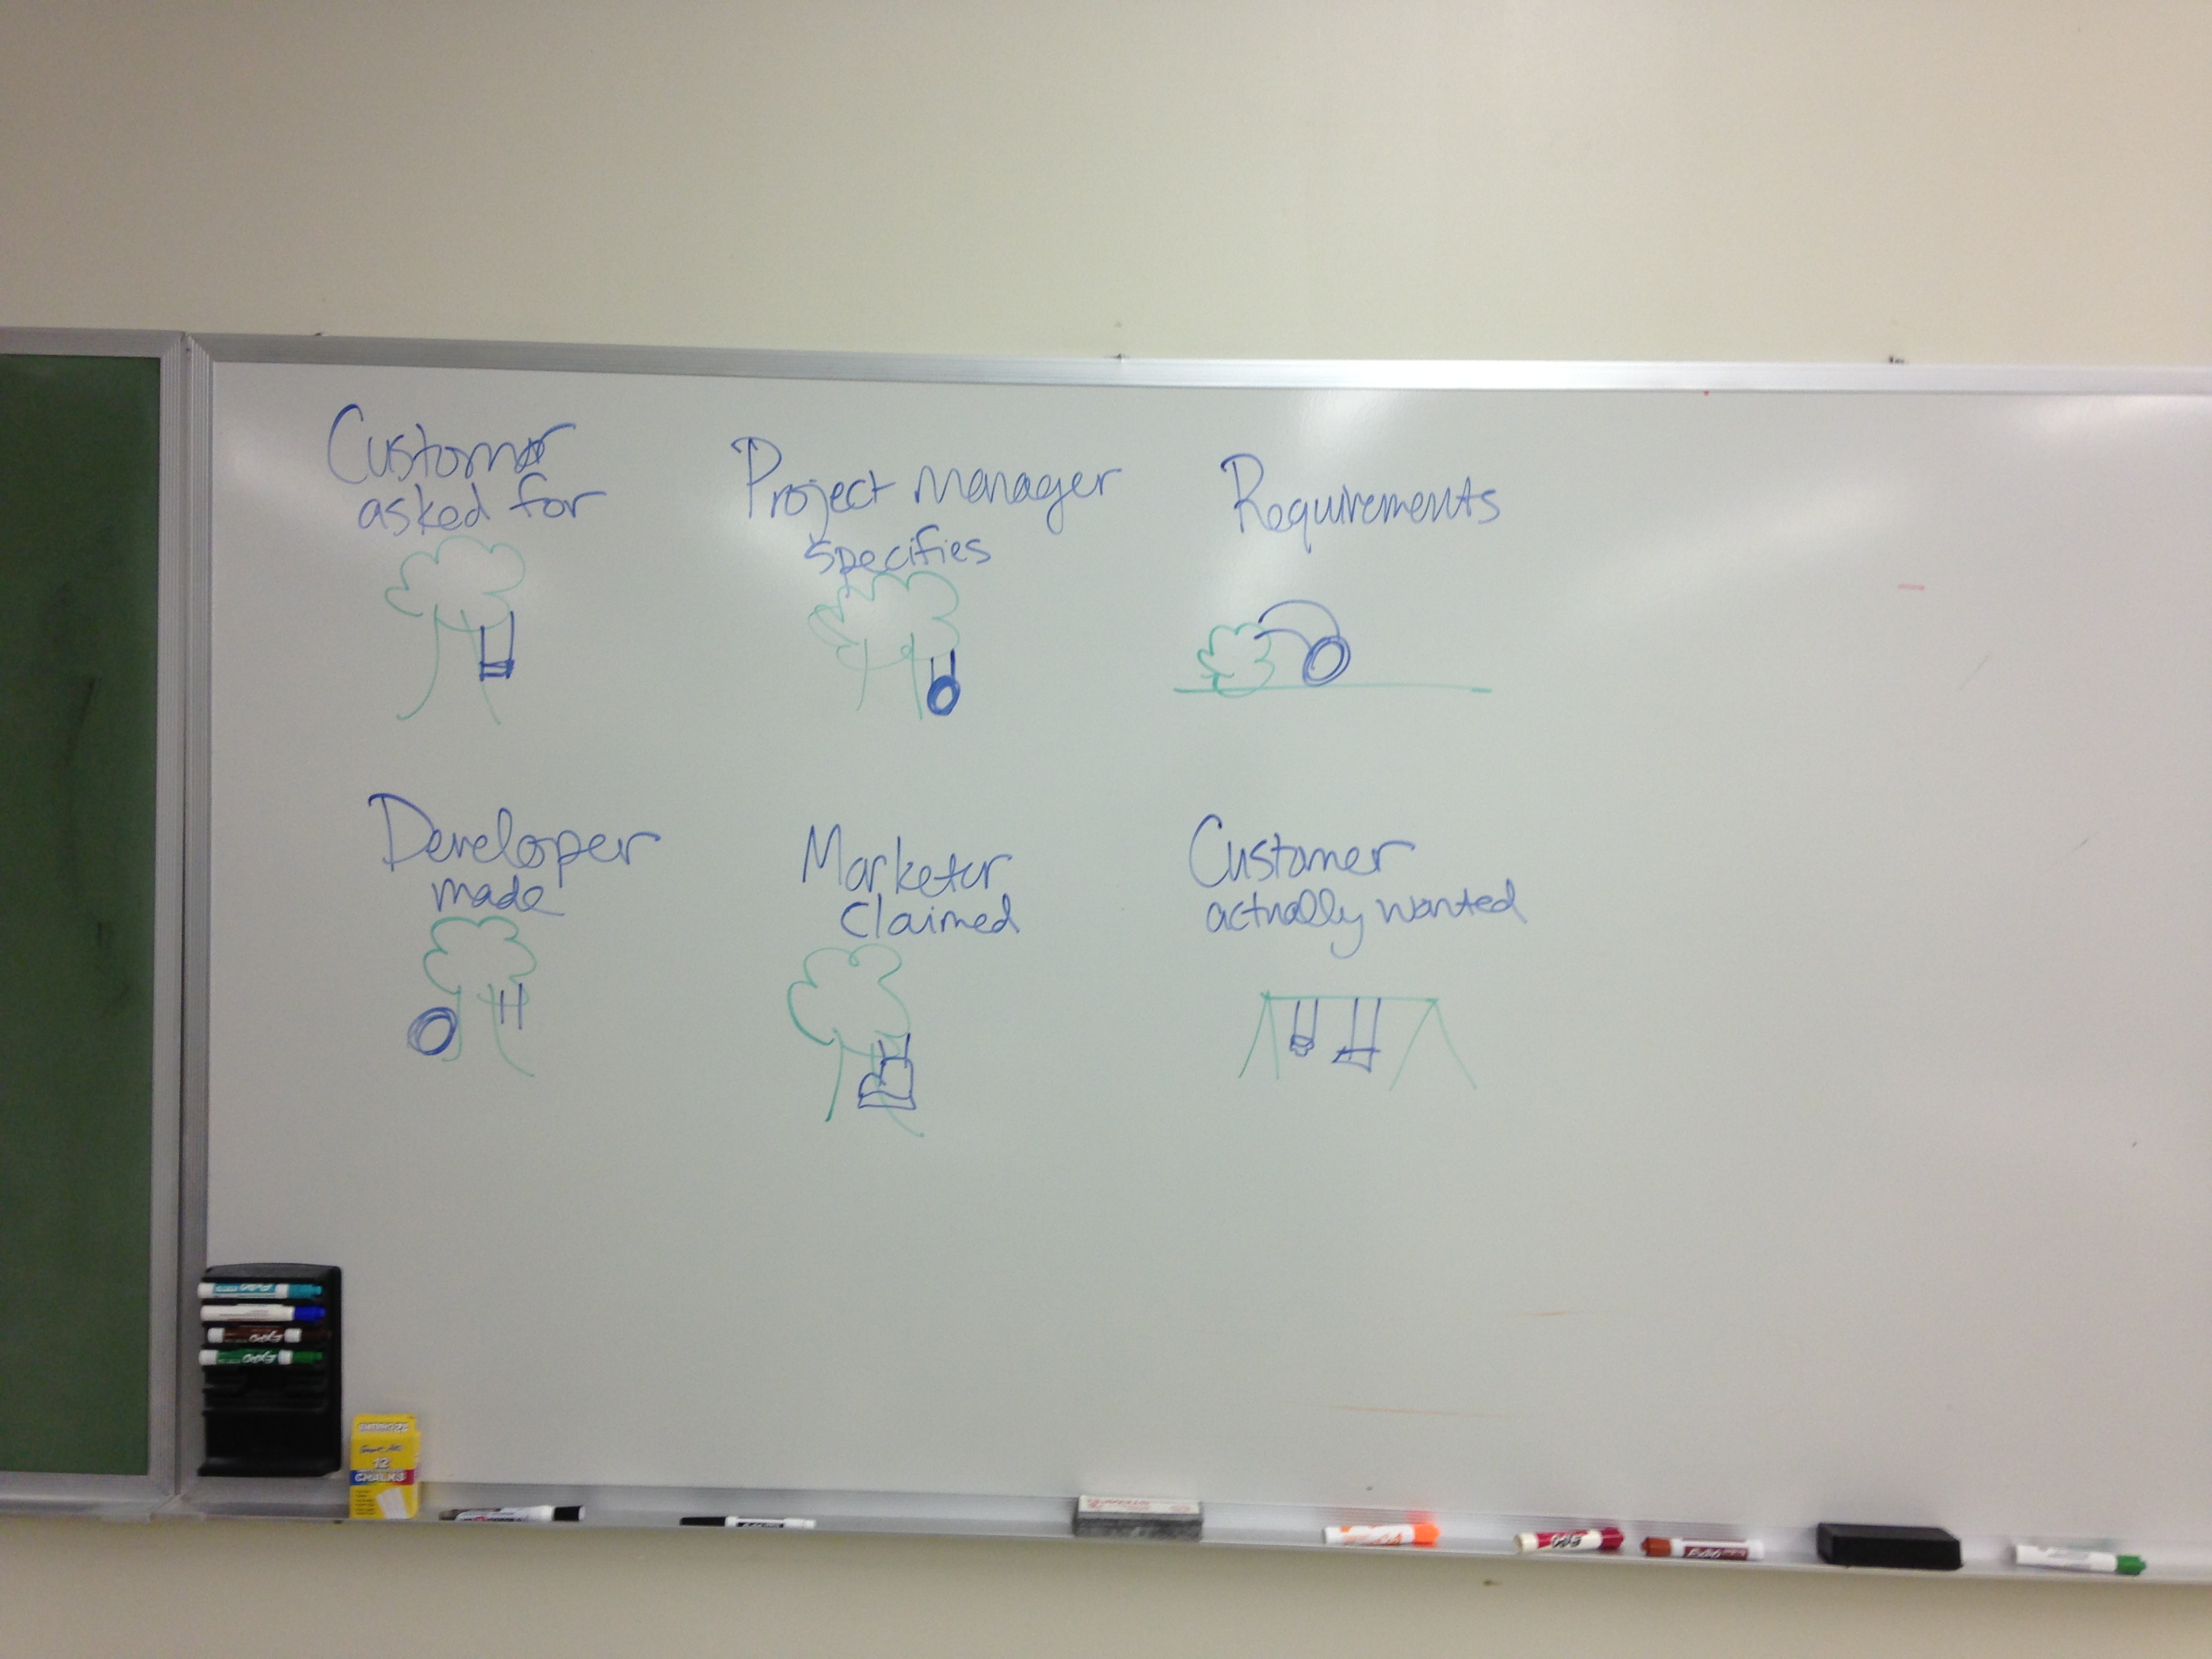 Customer
asked for
Project Manager
specifies
Requirements
Developer
made
Marketer
Claimed
Customer
actually wanted
EXPO
EXPO
12
CHALKS
EXPO
EXPO